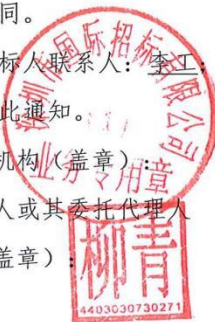 同。
标人联系人：李工，
此通知。
机构（盖章）：
人或其委托代理人
盖章）：
国际招标有限公司
业务专用章
柳青
4403030730271